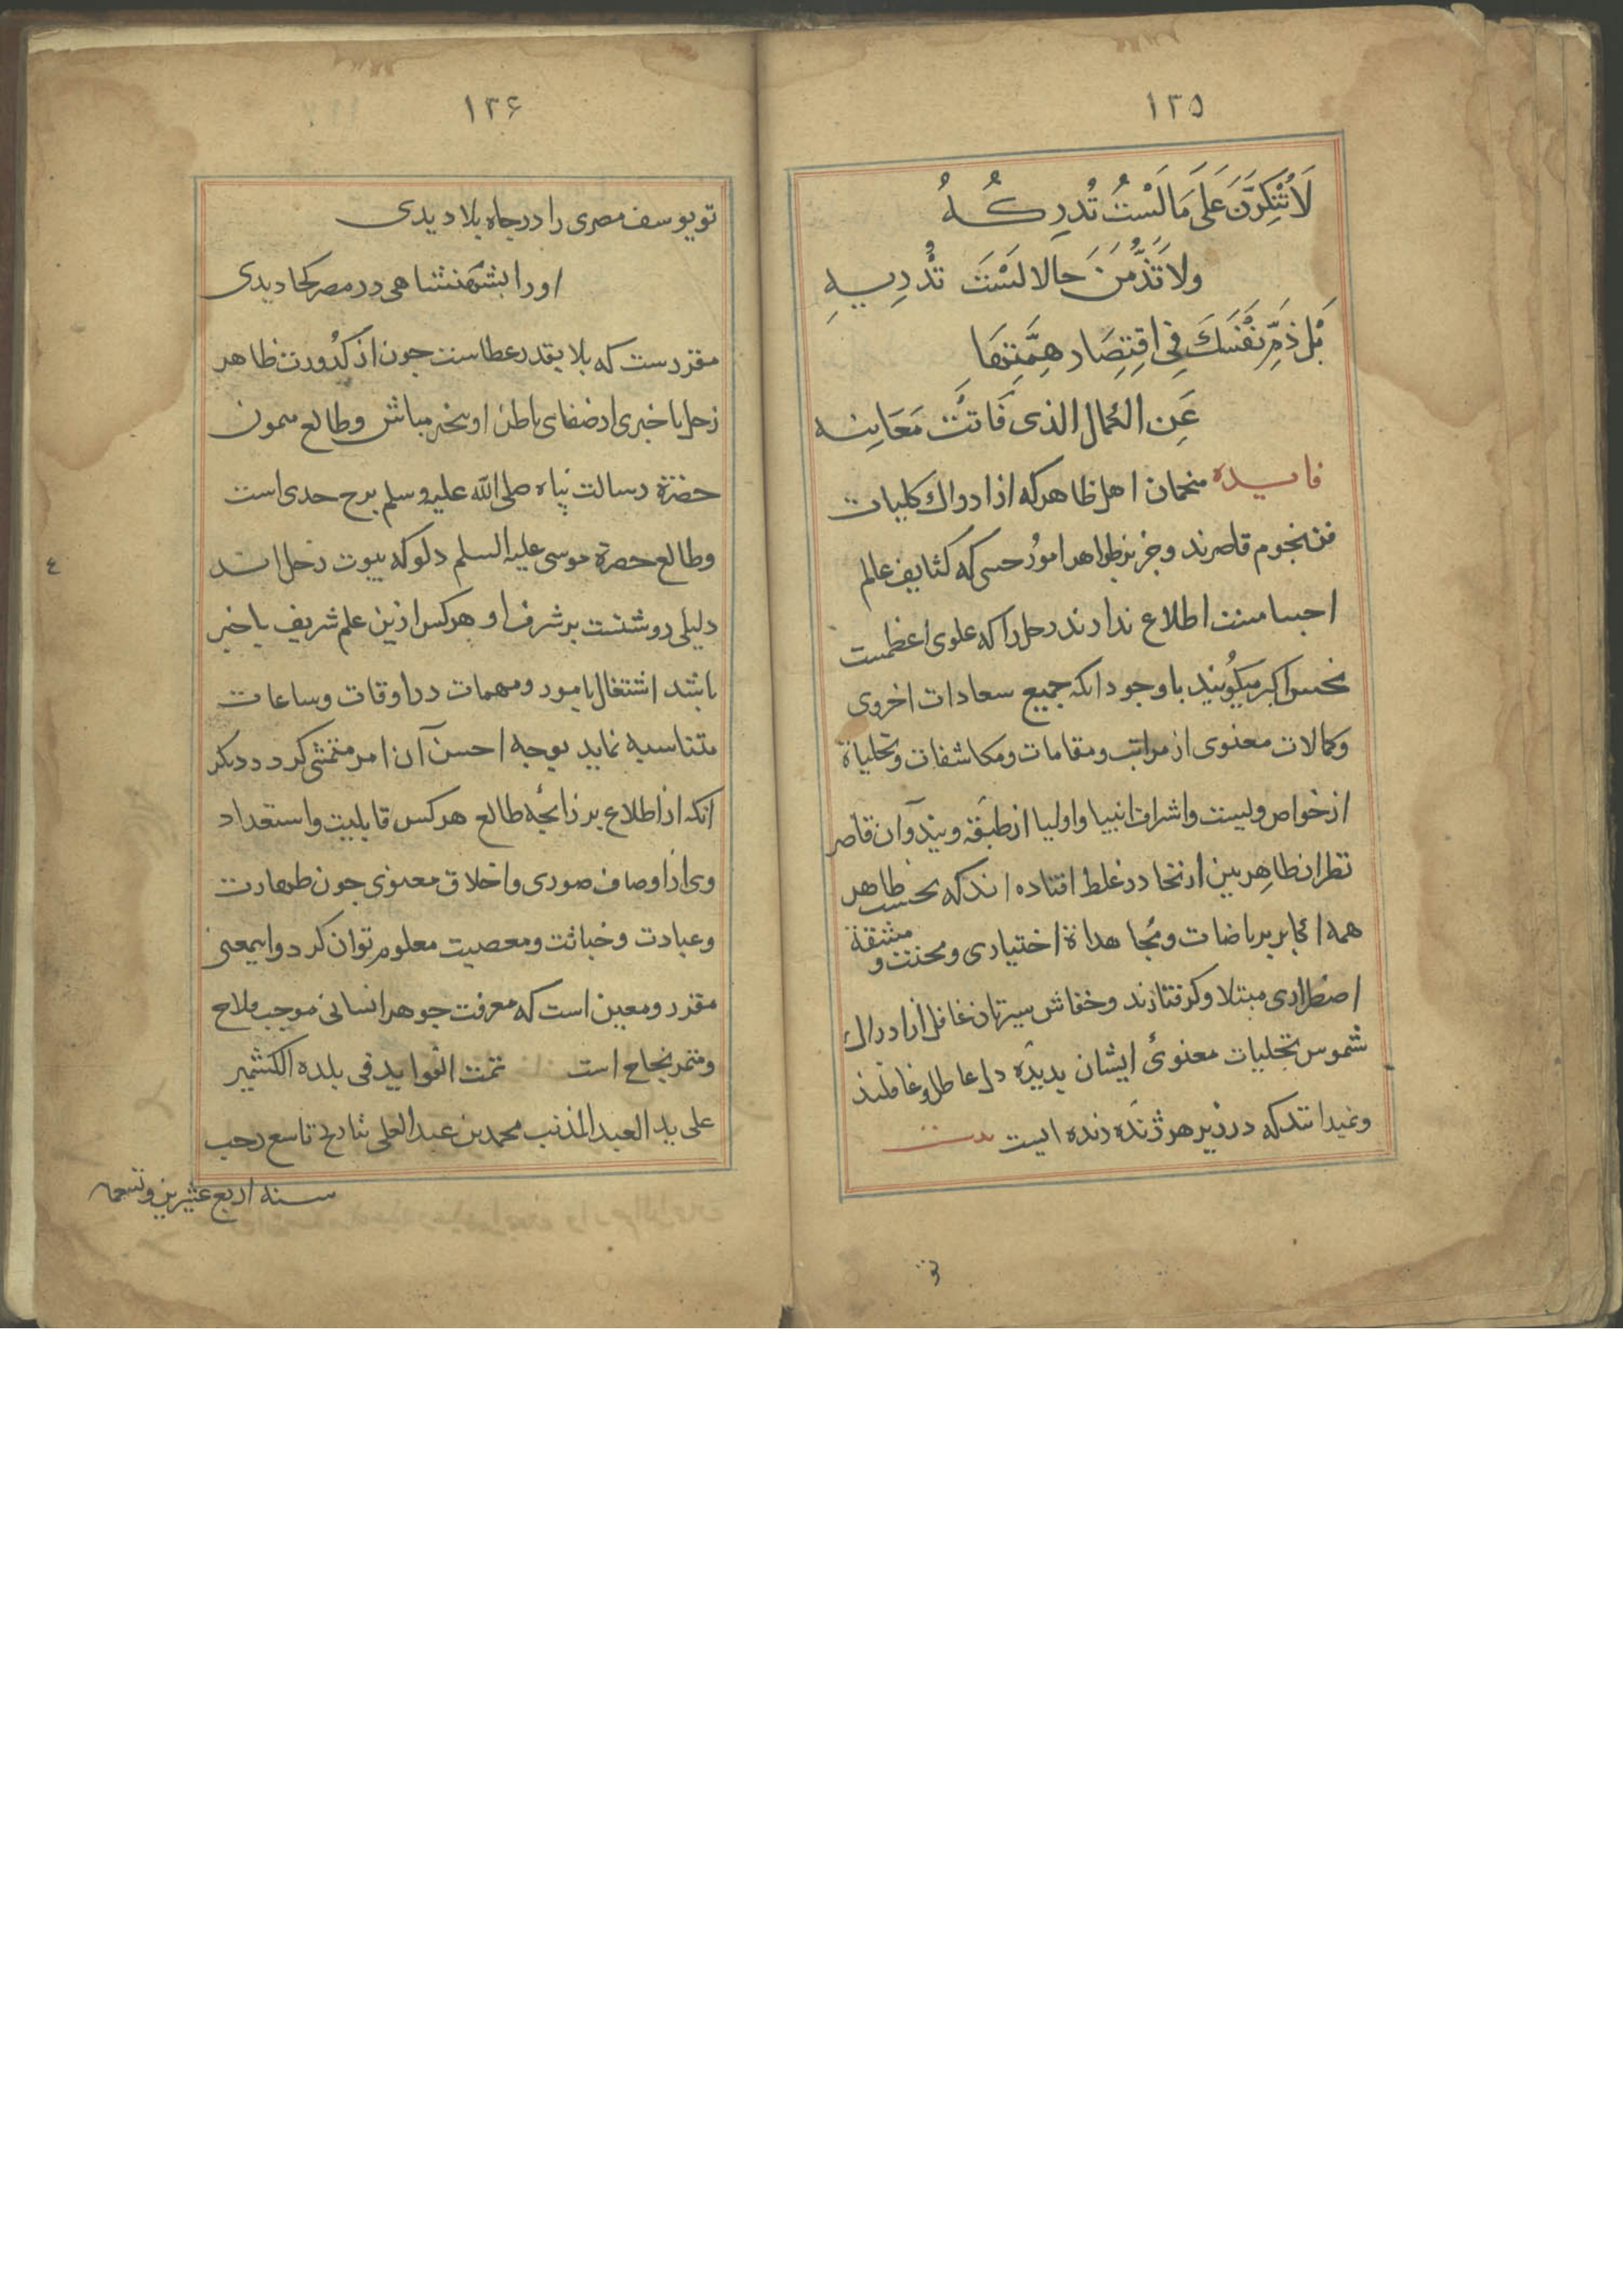 ۱۳۵
لَا تُنْكِرَنَّ عَلَى مَا لَسْتَ تُدرِكُهُ
ولا تَذُمَّنَ حالا لَسْتَ تَدْرِیهِ
بَل ذَمِّ نَفْسَكَ فِی اقتِصَارِ هِمَّتِهَا
عَنِ الكمال الذی فَاتَتْ مَعَانِیه
فایده منجمان اهل ظاهر که از ادراك كلیات
فن نجوم قاصرند و جز بر ظواهر امور حسی که کثایف عالم
اجسامست اطلاع ندارند زحل را که علوی اعظمست
نحس اکبر میگویند با وجود آنکه جمیع سعادات اخروی
وکمالات معنوی از مراتب ومقامات ومکاشفات وتجلیاة
از خواص ویست واشراف انبیا واولیا از طبقهٔ ویند وآن قاصر
نظران ظاهربین از آنجا در غلط افتاده اند که بحسب ظاهر
همه اکابر بریاضات ومجاهداة اختیاری ومحنت ومشقة
اضطراری مبتلا وگرفتارند وخفاش سیرتان غافل از ادراك
شموس تجلیات معنوئ ایشان بدیدهٔ دل عاطل وغافلند
ونمیدانند که در زیر هر ژنده زنده ایست بیت
تو
۱۳۶
تو یوسف مصری را در چاه بلا دیدی
او را بشهنشاهی در مصر کجا دیدی
مقررست که بلا بقدر عطاست چون از کدورت ظاهر
زحل با خبری از صفای باطن او بیخبر مباش وطالع میمون
حضرة رسالت پناه صلی الله علیه وسلم برج جدی است
وطالع حضرة موسی علیه السلم دلو که بیوت زحل اند
دلیلی روشنست بر شرف او وهر کس ازین علم شریف با خبر
باشد اشتغال بامور ومهمات در اوقات وساعات
متناسبه نماید بوجه احسن آن امر متمشی کردد دیکر
انکه از اطلاع بر زائجه طالع هر کس قابلیت واستعداد
وی از اوصاف صوری واخلاق معنوی چون طهارت
وعبادت وخباثت ومعصیت معلوم توان کرد واینمعنی
مقرر ومعین است که معرفت جوهر انسانی موجب فلاح
ومثمر نجاح است تمت الفواید فی بلده الکشمیر
علی ید العبد المذنب محمد بن عبد العلی بتاریخ تاسع رجب
سنه اربع عشرین وتسعمایه
٤